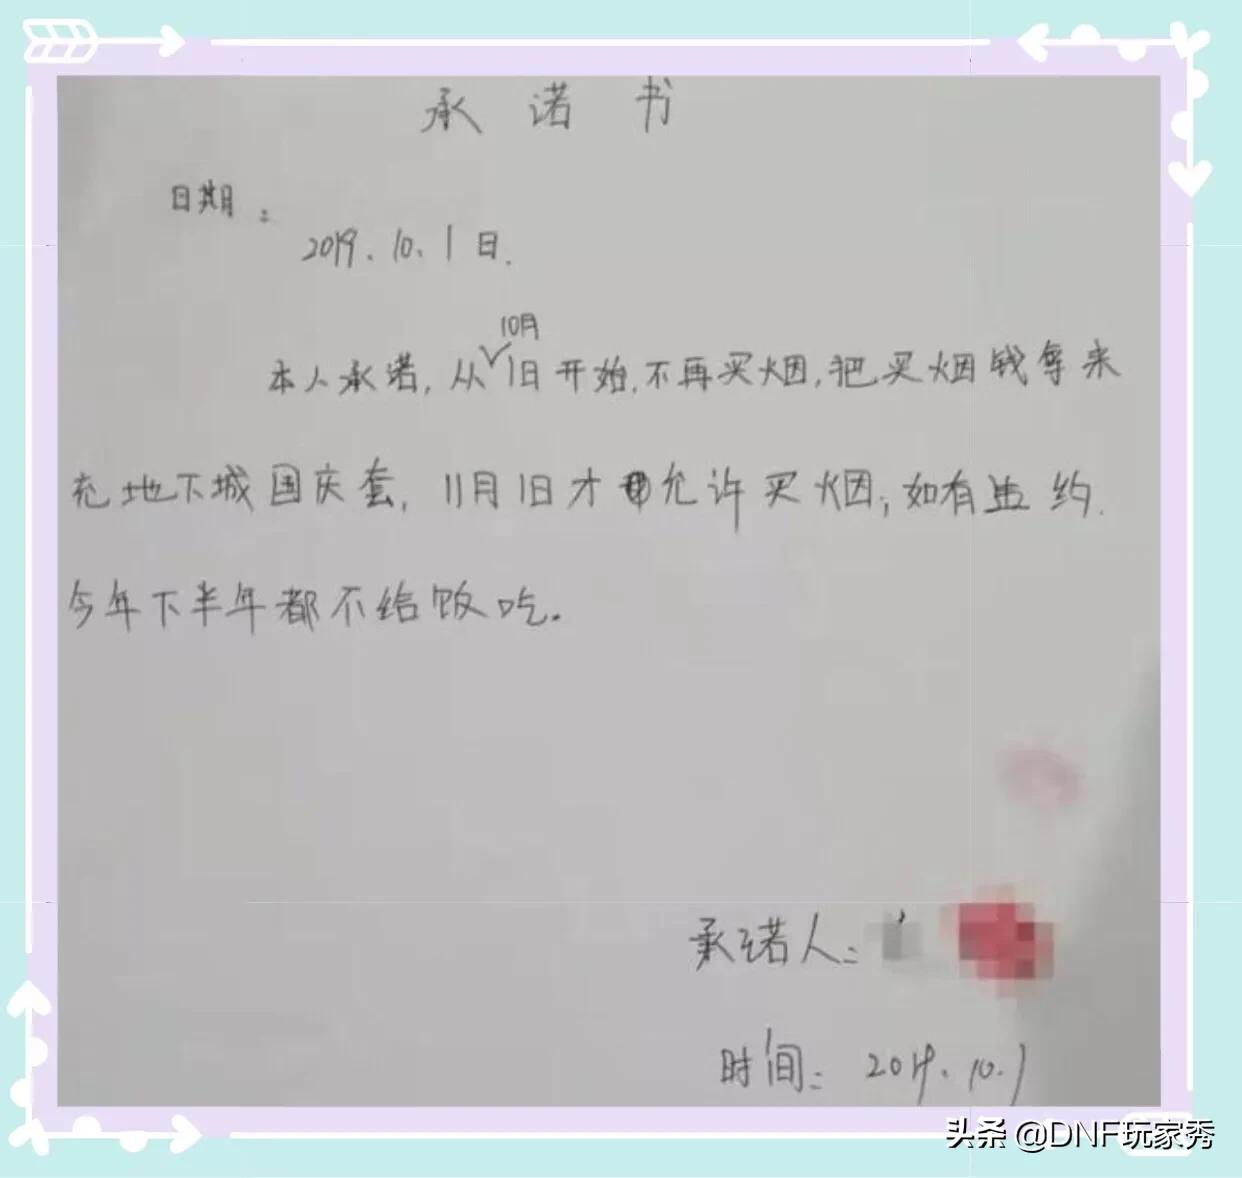 承诺书
日期:
2019.10.1日.
10月
本人承诺,从1日开始,不再买烟,把买烟钱拿来
充地下城国庆套,11月1日才允许买烟,如有违约.
今年下半年都不给饭吃.
承诺人:
时间: 2019.10.1
头条 @DNF玩家秀